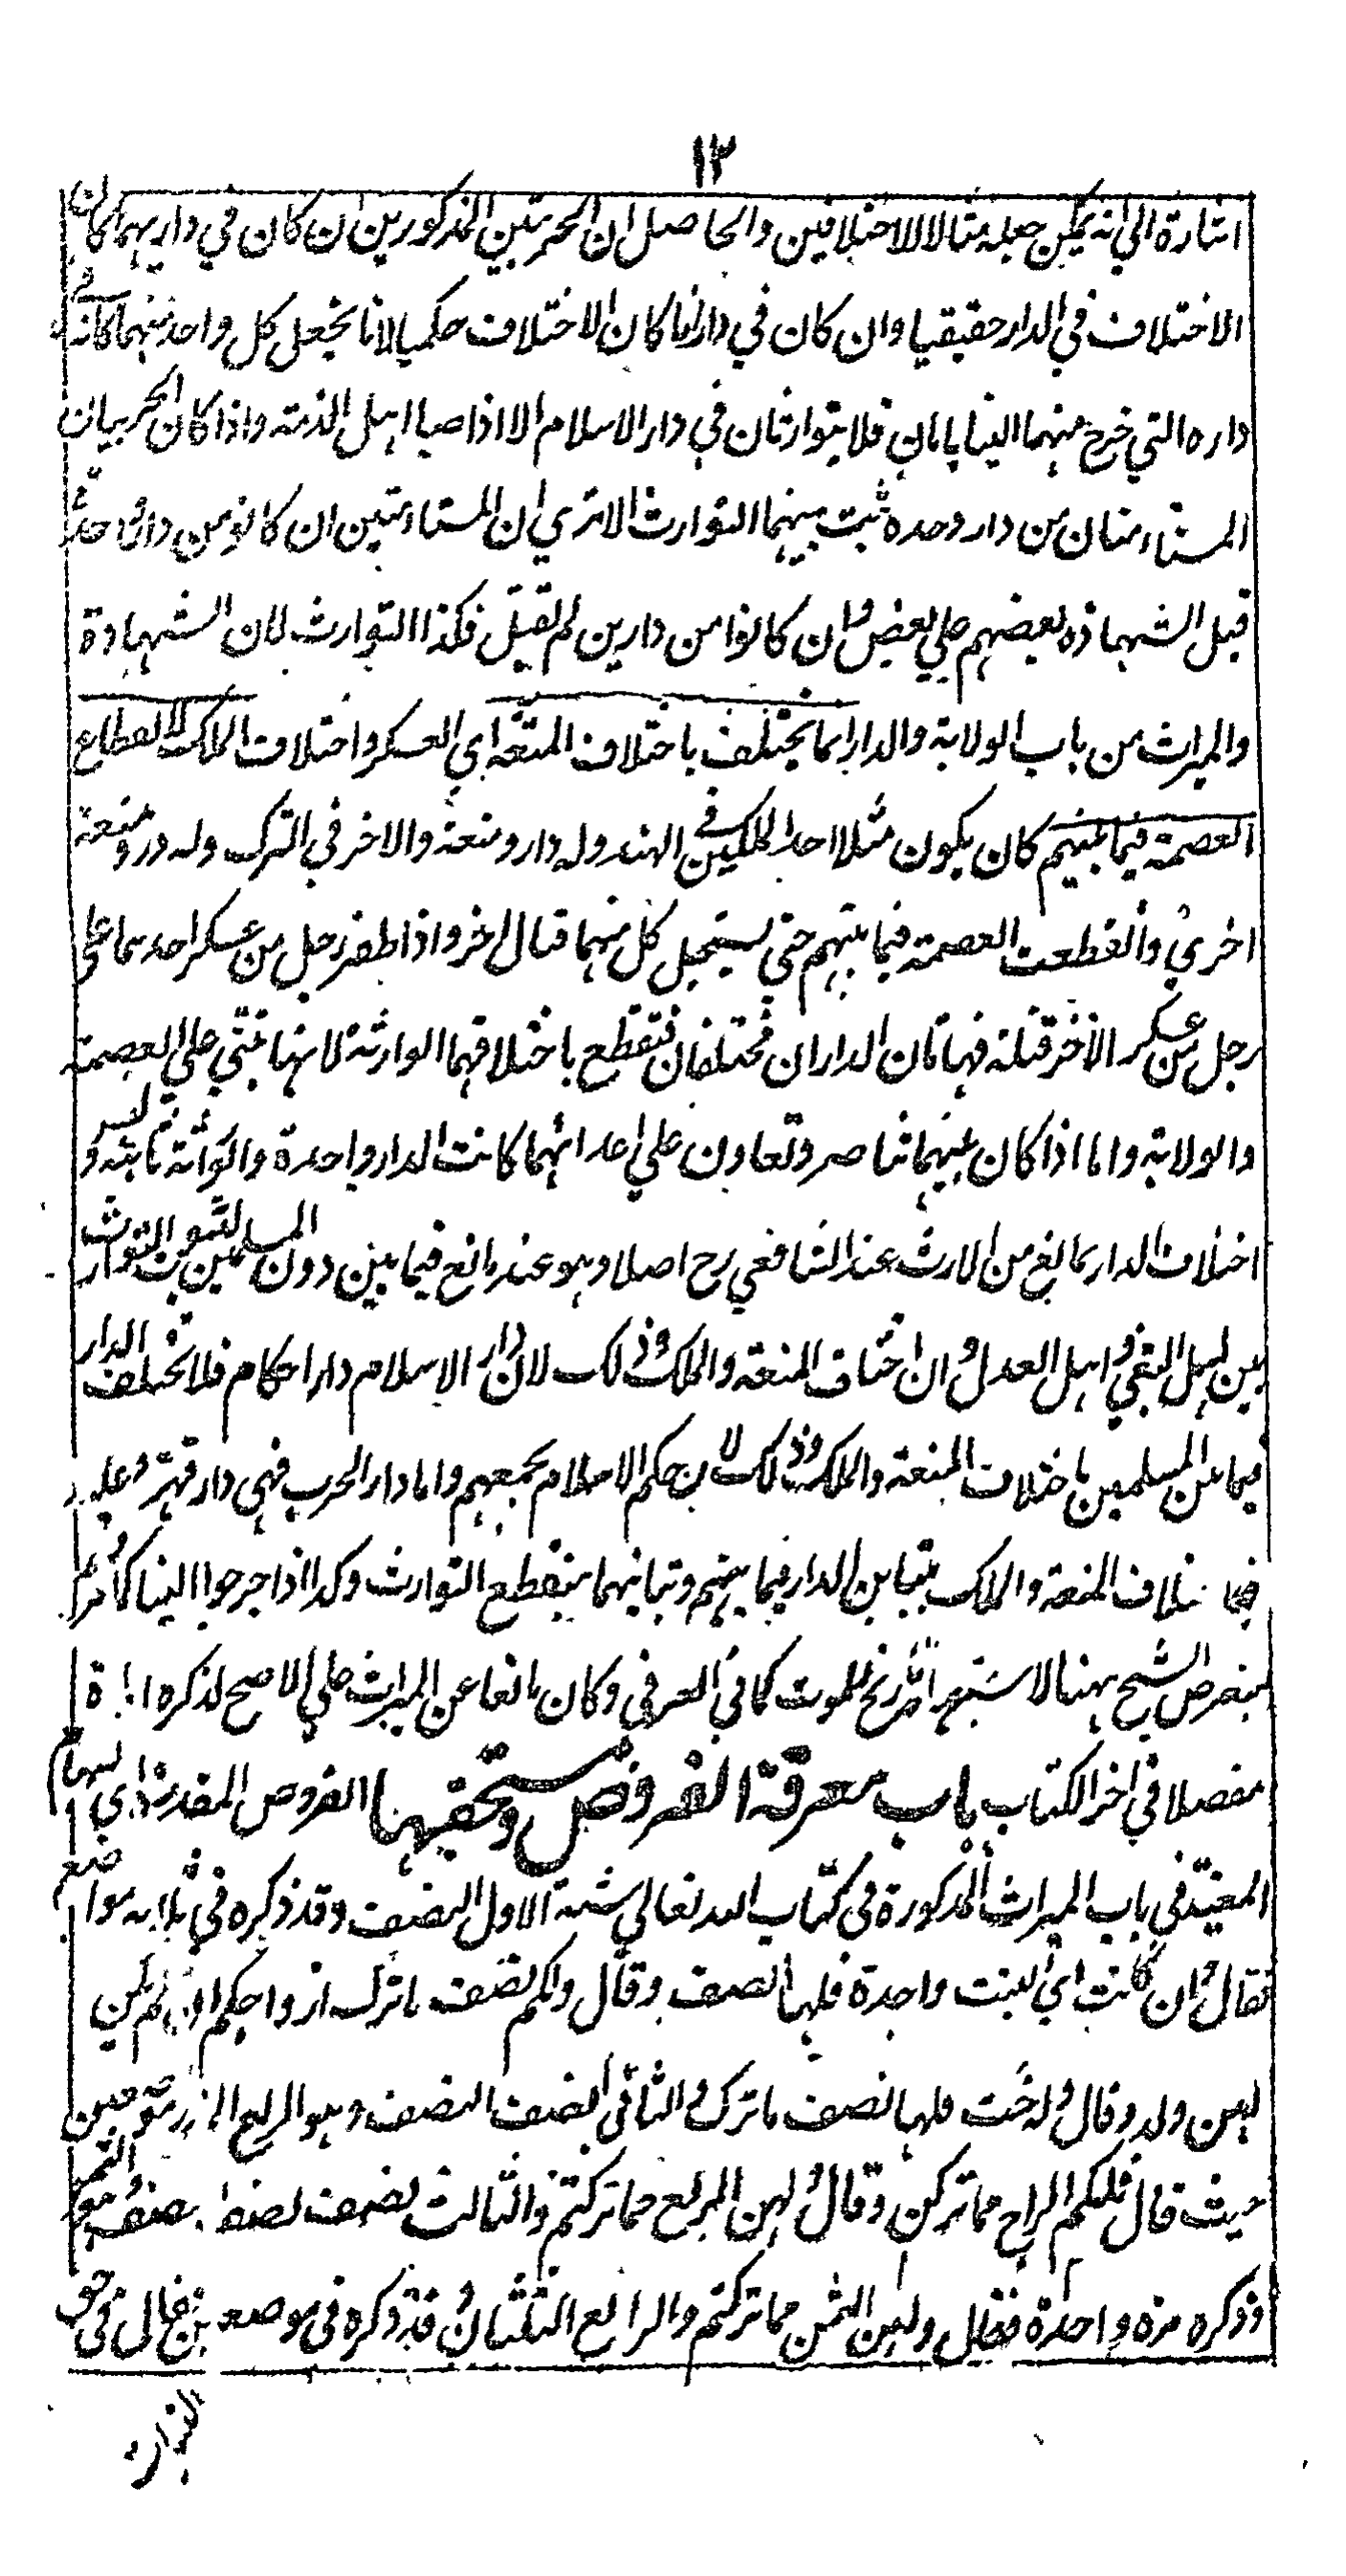 ١٢
اشارة الي انه يمكن جعله مثالا للاختلافين والحاصل ان الحربيين المذكورين ان كان في داريهما كان
الاختلاف في الدار حقيقيا وان كان في دارنا كان الاختلاف حكميا لانا نجعل كل واحد منهما كانه في
داره التي خرج منهما الينا بامان فلا يتوارثان في دار الاسلام الا اذا صارا اهل الذمة واذا كان الحربيان
المستامنان من دار وحده ثبت بينهما التوارث الا تري ان المستامنين ان كانو من دار واحد
قبل الشهادة بعضهم علي بعض وان كانوا من دارين لم تقبل فكذا التوارث لان الشهادة
والميراث من باب الولاية والدار انما يختلف باختلاف المنعة اي العسكر واختلاف الملك لانقطاع
العصمة فيما بينهم كان يكون مثلا احد الملكين في الهند وله دار ومنعة والاخر في الترك وله در ومنعة
اخري وانقطعت العصمة فيما بينهم حتي يستحل كل منهما قتال اخر واذا ظفر رجل من عسكر احدهما علي
رجل من عسكر الآخر قتله فهاتان الداران مختلفان فتقطع باختلافهما الوارثة لانها تبتني علي العصمة
والولاية واما اذا كان بينهما تناصر وتعاون علي اعدائهما كانت الدار واحدة والوراثة ثابتة ثم ليس و
اختلاف الدار بمانع من الارث عند الشافعي رح اصلا وهو عندنا مانع فيما بين دون المسلمين لثبوت التوارث
بين اهل البغي و اهل العدل و ان اختلف المنعة والملك وذلك لان دار الاسلام دار احكام فلا تختلف الدار
فيما بين المسلمين باختلاف المنعة والملك وذلك لان حكم الاسلام يجمعهم واما دار الحرب فهي دار قهر وغلبة
المنعة والملك يتباين الدار فيما بينهم وتباينهما ينقطع التوارث وكذا اذا خرجوا الينا
الشيخ ههنا تاريخ للموت كما في الغرقي وكان مانعا عن الميراث علي الاصح لذكره
مفصلا في اخر الكتاب باب معرفة الفروض ومستحقيها الفروض المقدرة اي السهام
المعينة في باب الميراث المذكورة في كتاب الله تعالي ستة الاول النصف وقد ذكره في ثلاثة مواضع
فقال وان كانت اي البنت واحدة فلها النصف وقال ولكم نصف ما ترك ازواجكم ان لم يكن
لهن ولد وقال وله اخت فلها نصف ما ترك والثاني نصف النصف وهو الربع موضعين
حيث قال فلكم الربع مما تركن وقال ولهن الربع مما تركتم والثالث نصف نصف وهو الثمن
وذكره مرة واحدة فقال ولهن الثمن مما تركتم والرابع الثلثان وقد ذكره في موضعين فقال في حق